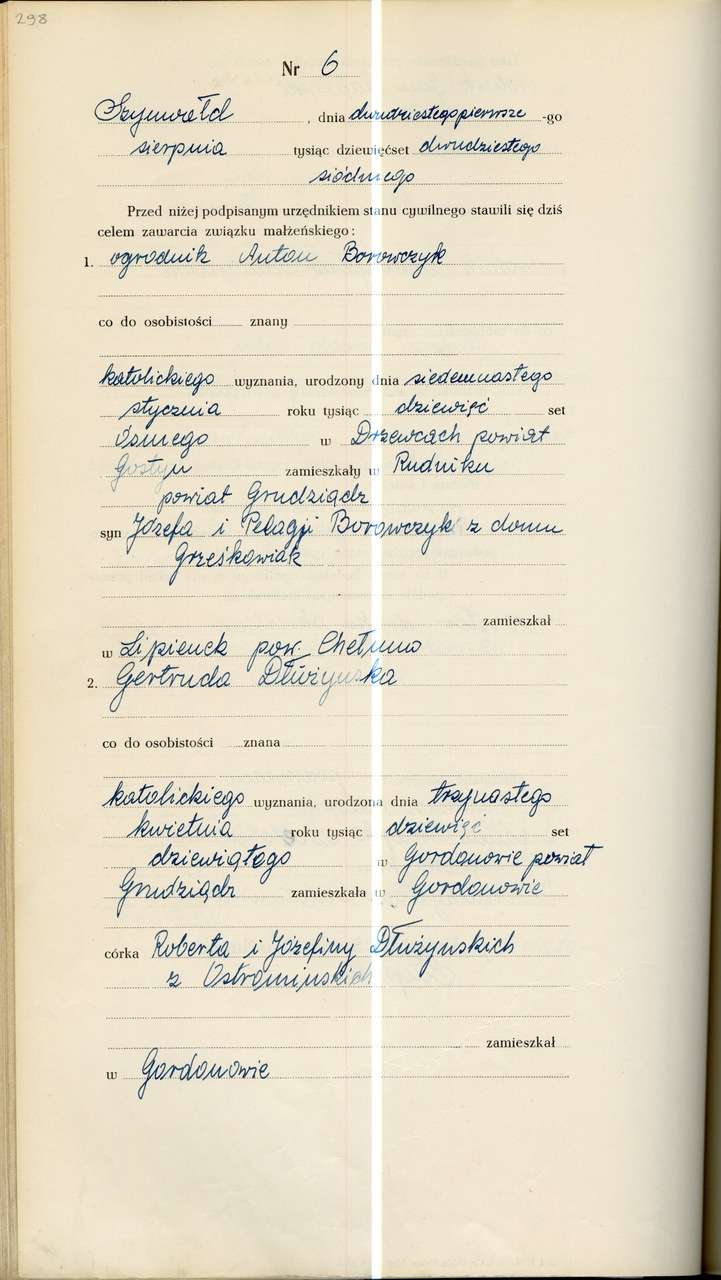 298
Nr 6
Szynwałd, dnia dwudziestegopierwsze -go
sierpnia tysiąc dziewięćset dwudziestego
siódmego
Przed niżej podpisanym urzędnikiem stanu cywilnego stawili się dziś
celem zawarcia związku małżeńskiego:
1. ogrodnik Anton Borowczyk
co do osobistości znany
katolickiego wyznania, urodzony dnia siedemnastego
stycznia roku tysiąc dziewięć set
ósmego w Drzewcach powiat
Gostyn zamieszkały w Rudniku
powiat Grudziądz
syn Józefa i Pelagji Borowczyk z domu
Grześkowiak
zamieszkał
w Lipienek pow. Chełmno
2. Gertruda Dłużynska
co do osobistości znana
katolickiego wyznania, urodzona dnia trzynastego
kwietnia roku tysiąc dziewięć set
dziewiątego w Gordonowie powiat
Grudziądz zamieszkała w Gordonowie
córka Roberta i Józefiny Dłużynskich
z Ostromińskich
zamieszkał
w Gordonowie